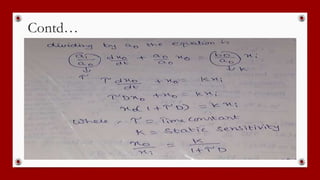 Contd…
dividing by a₀ the equation is
(a₁/a₀) dx₀/dt + a₀/a₀ x₀ = (b₀/a₀) xᵢ
↓ ↓ k
τ
τ dx₀/dt + x₀ = kxᵢ
τDx₀ + x₀ = kxᵢ
x₀(1+τD) = kxᵢ
Where :- τ = Time constant
k = Static sensitivity
x₀/xᵢ = k/1+τD